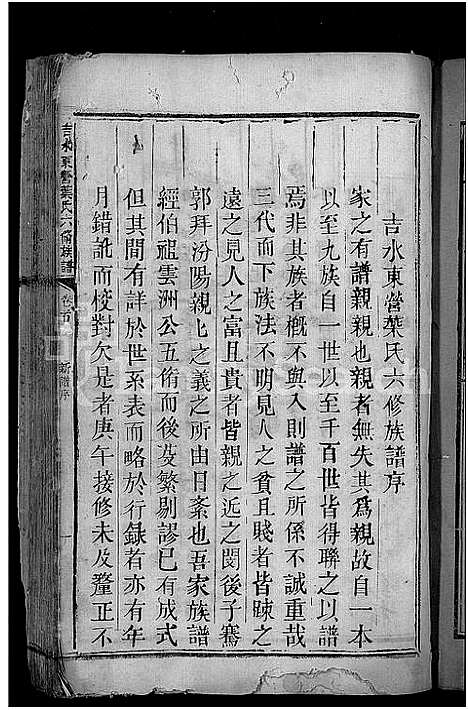 吉水東營葉氏六修族譜序
家之有譜親親也親者無失其爲親故自一本
以至九族自一世以至千百世皆得聯之以譜
焉非其族者槪不與入則譜之所係不誠重哉
三代而下族法不明見人之貧且賤者皆疎之
遠之見人之富且貴者皆親之近之閔後子騫
郭拜汾陽親上之義之所由日紊也吾家族譜
經伯祖雲洲公五脩而後芟繁剔謬已有成式
但其間有詳於世系表而略於行録者亦有年
月錯訛而校對欠是者庚午接修未及釐正不
吉水東營葉氏六脩族譜
卷首
新譜序
一